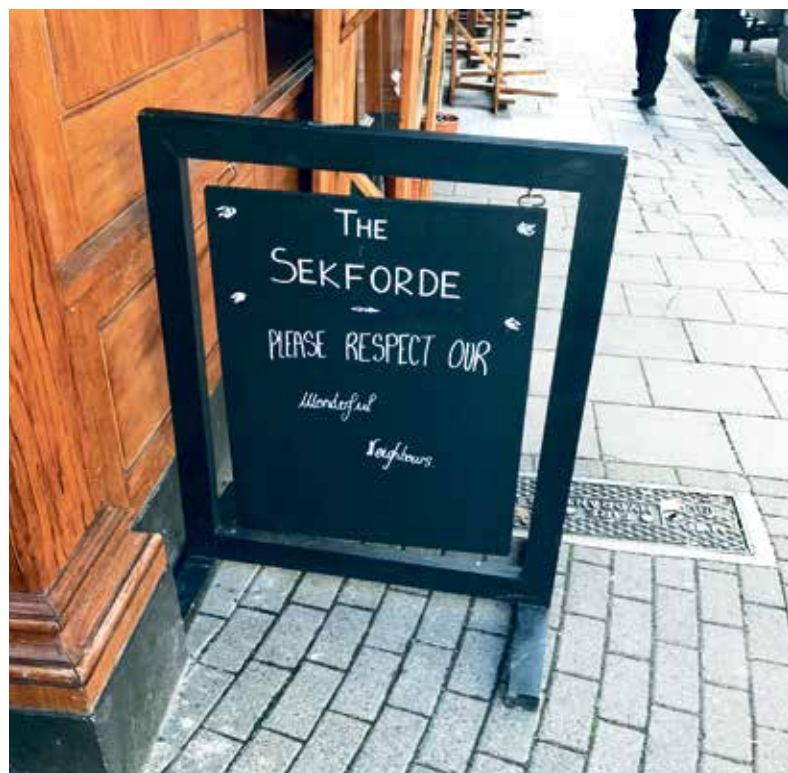 THE
SEKFORDE
PLEASE RESPECT OUR
Wonderful
Neighbours.